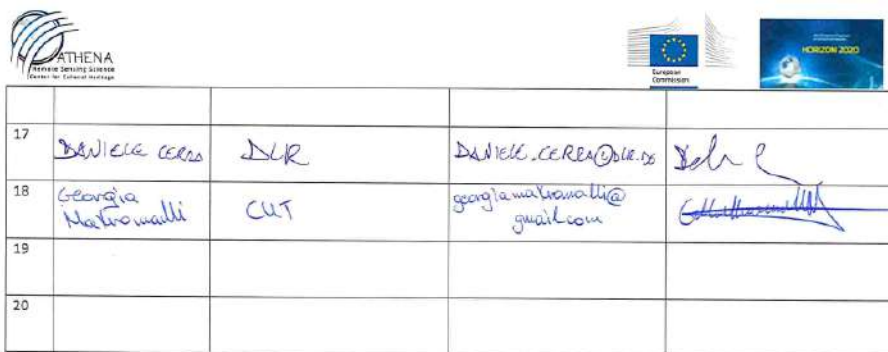 ATHENA
Remote Sensing Science
Center for Cultural Heritage
European
Commission
HORIZON 2020
17
DANIELE CERRA
DLR
DANIELE.CERRA@DLR.DE
18
Georgia
CUT
gmail.com
19
20